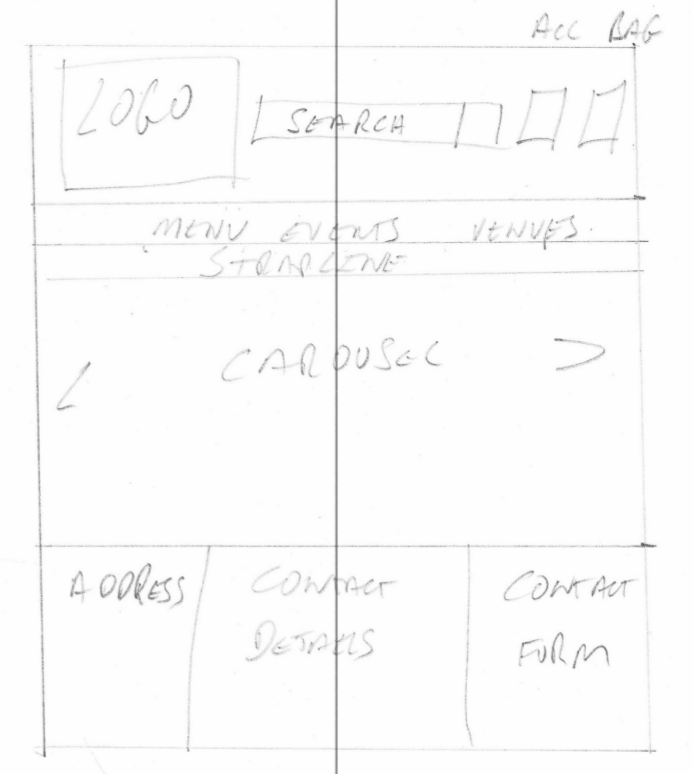 ACC BAG
LOGO
SEARCH
MENU EVENTS VENUES.
STRAPLINE
< CAROUSEL >
ADDRESS CONTACT CONTACT
DETAILS FORM